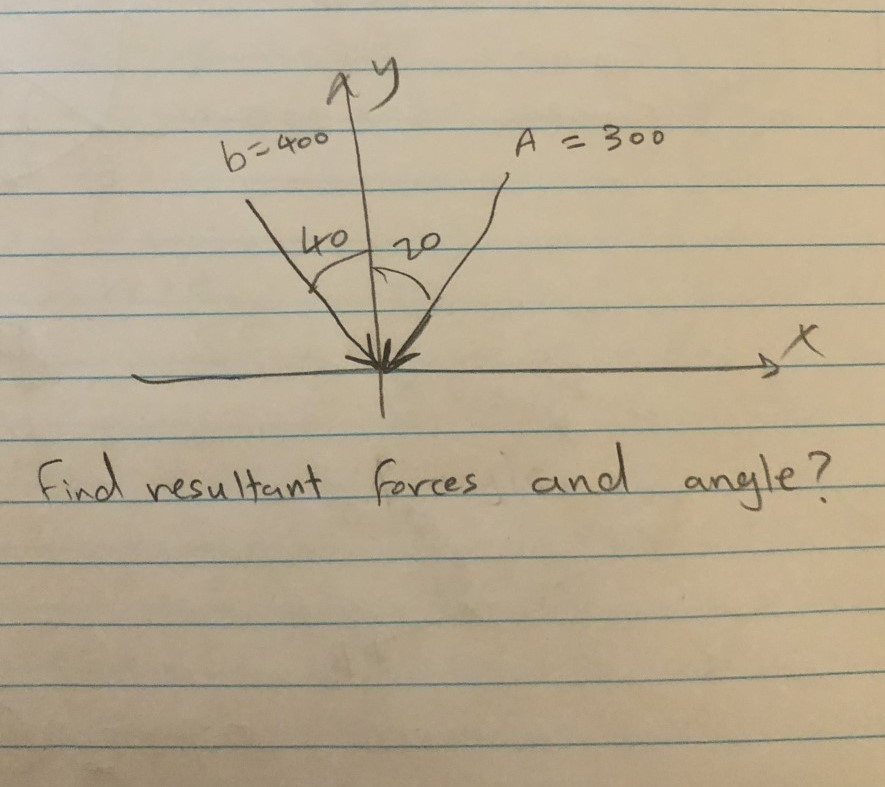 y
b=400
A = 300
40
20
X
Find resultant forces and angle?